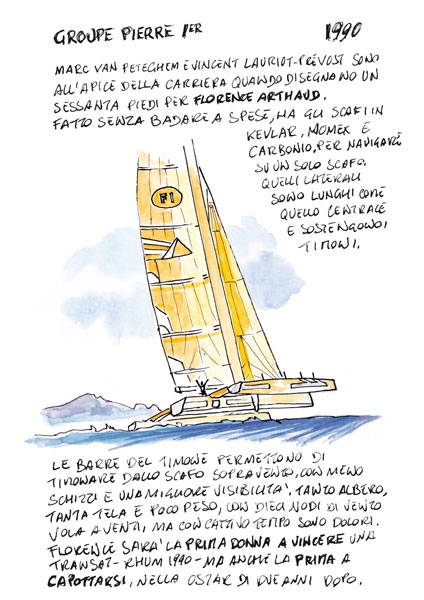 GROUPE PIERRE 1ER 1990
MARC VAN PETEGHEM E VINCENT LAURIOT-PRÉVOST SONO
ALL'APICE DELLA CARRIERA QUANDO DISEGNANO UN
SESSANTA PIEDI PER FLORENCE ARTHAUD.
FATTO SENZA BADARE A SPESE, HA GLI SCAFI IN
KEVLAR, NOMEX E
CARBONIO, PER NAVIGARE
SU UN SOLO SCAFO.
QUELLI LATERALI
SONO LUNGHI COME
QUELLO CENTRALE
E SOSTENGONO I
TIMONI.
F1
LE BARRE DEL TIMONE PERMETTONO DI
TIMONARE DALLO SCAFO SOPRAVENTO, CON MENO
SCHIZZI E UNA MIGLIORE VISIBILITÀ. TANTO ALBERO,
TANTA TELA E POCO PESO, CON DIECI NODI DI VENTO
VOLA A VENTI, MA CON CATTIVO TEMPO SONO DOLORI.
FLORENCE SARÀ LA PRIMA DONNA A VINCERE UNA
TRANSAT - RHUM 1990 - MA ANCHE LA PRIMA A
CAPOTTARSI, NELLA OSTAR DI DUE ANNI DOPO.